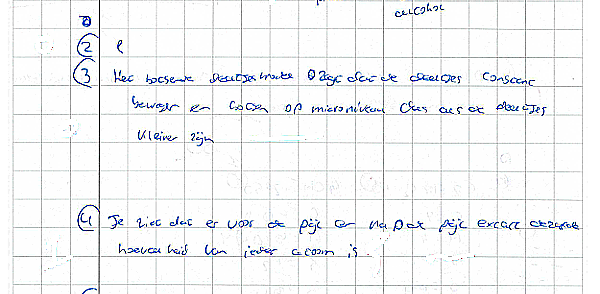 alcohol
② e
③ Het botsende deeltjes model zegt dat de deeltjes constant
bewegen en botsen op microniveau dus als de deeltjes
kleiner zijn
④ Je ziet dat er voor de pijl en na de pijl exact dezelfde
hoeveelheid van ieder atoom is.